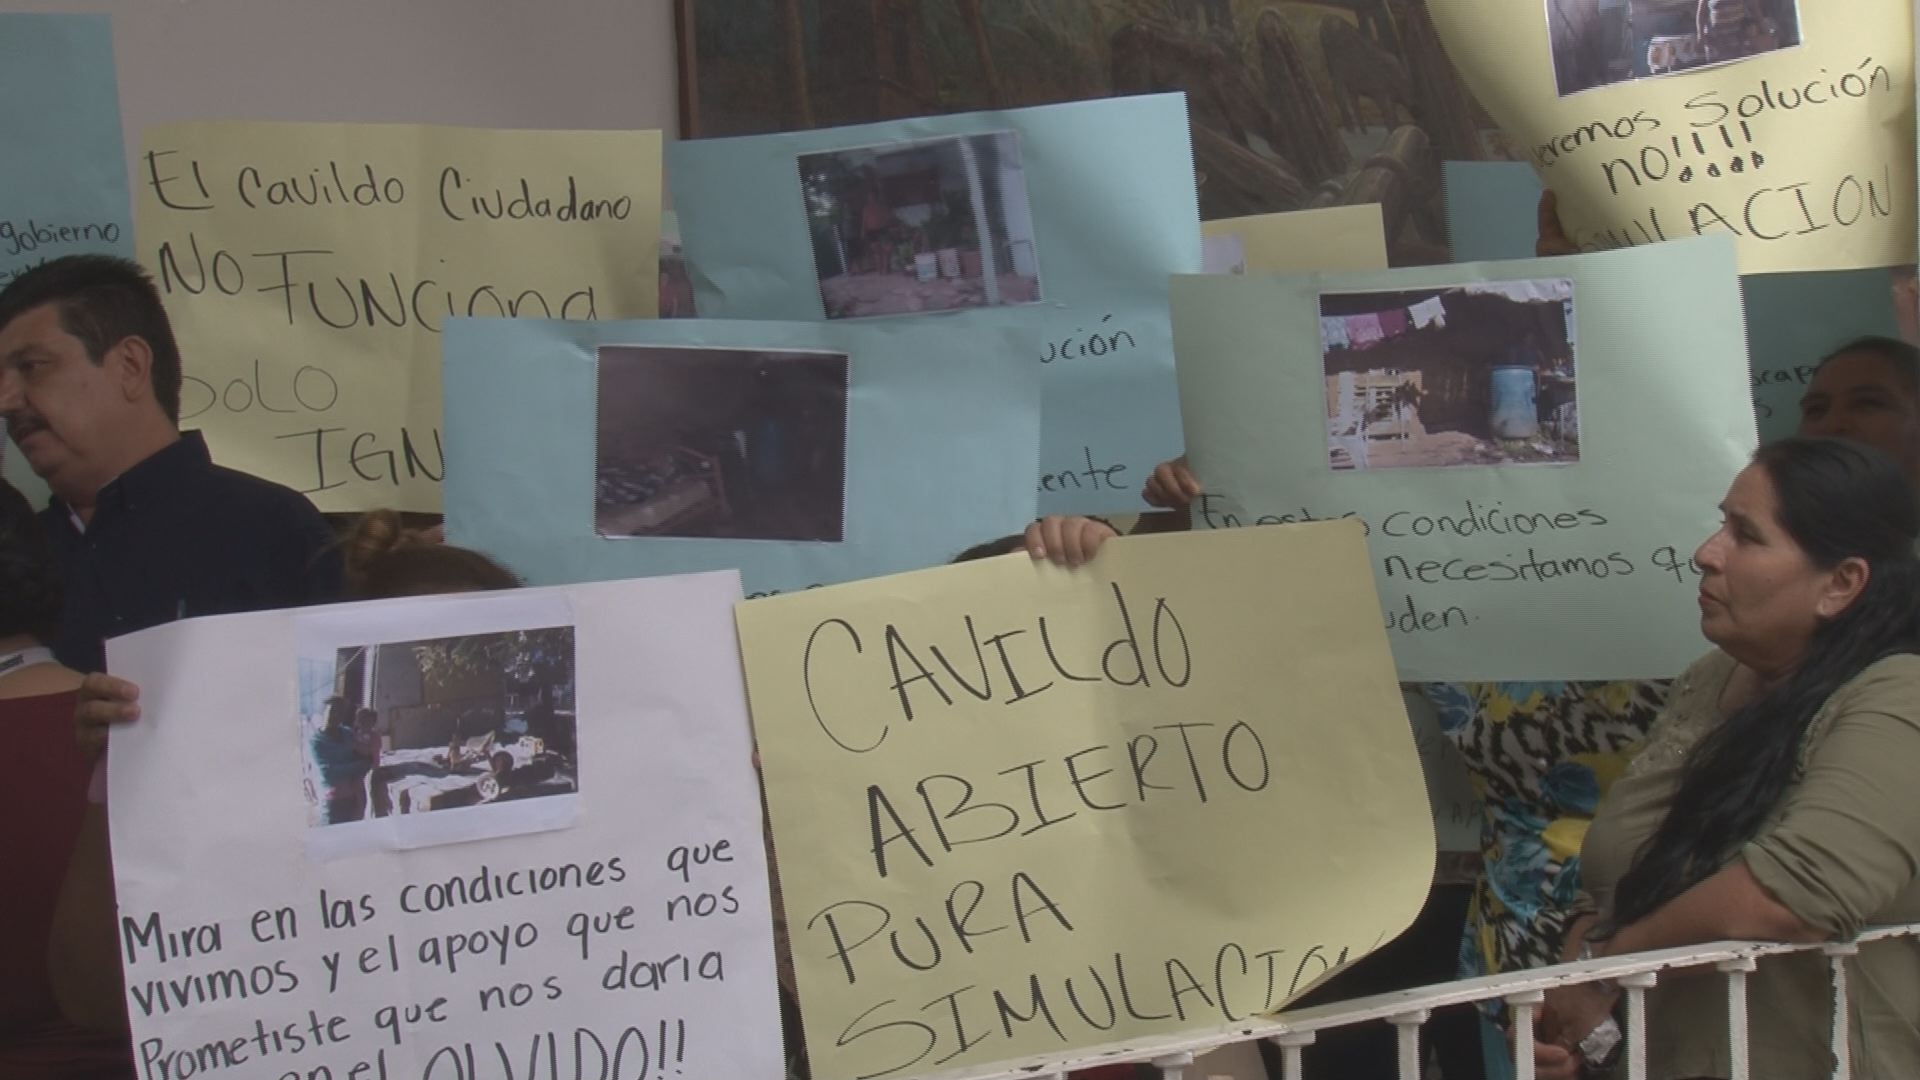 gobierno
El Cavildo Ciudadano
NO FUNCiona
SOLO
IGN
ución
ente
Solución
NO!!!!
En estas condiciones
necesitamos
uden.
Mira en las condiciones que
vivimos y el apoyo que nos
Prometiste que nos daria
en el OLVIDO!!
CAVILdO
ABIERTO
PURA
SIMULACION